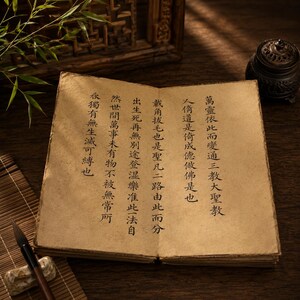 萬靈依此而變通三教大聖教
人脩道是脩成德做佛是也
戴角拔毛也是聖凡二路由此而分
出生死再無別途登湼樂准此一法自
然世間萬事未有物不被無常所
夜獨有無生滅可縛也